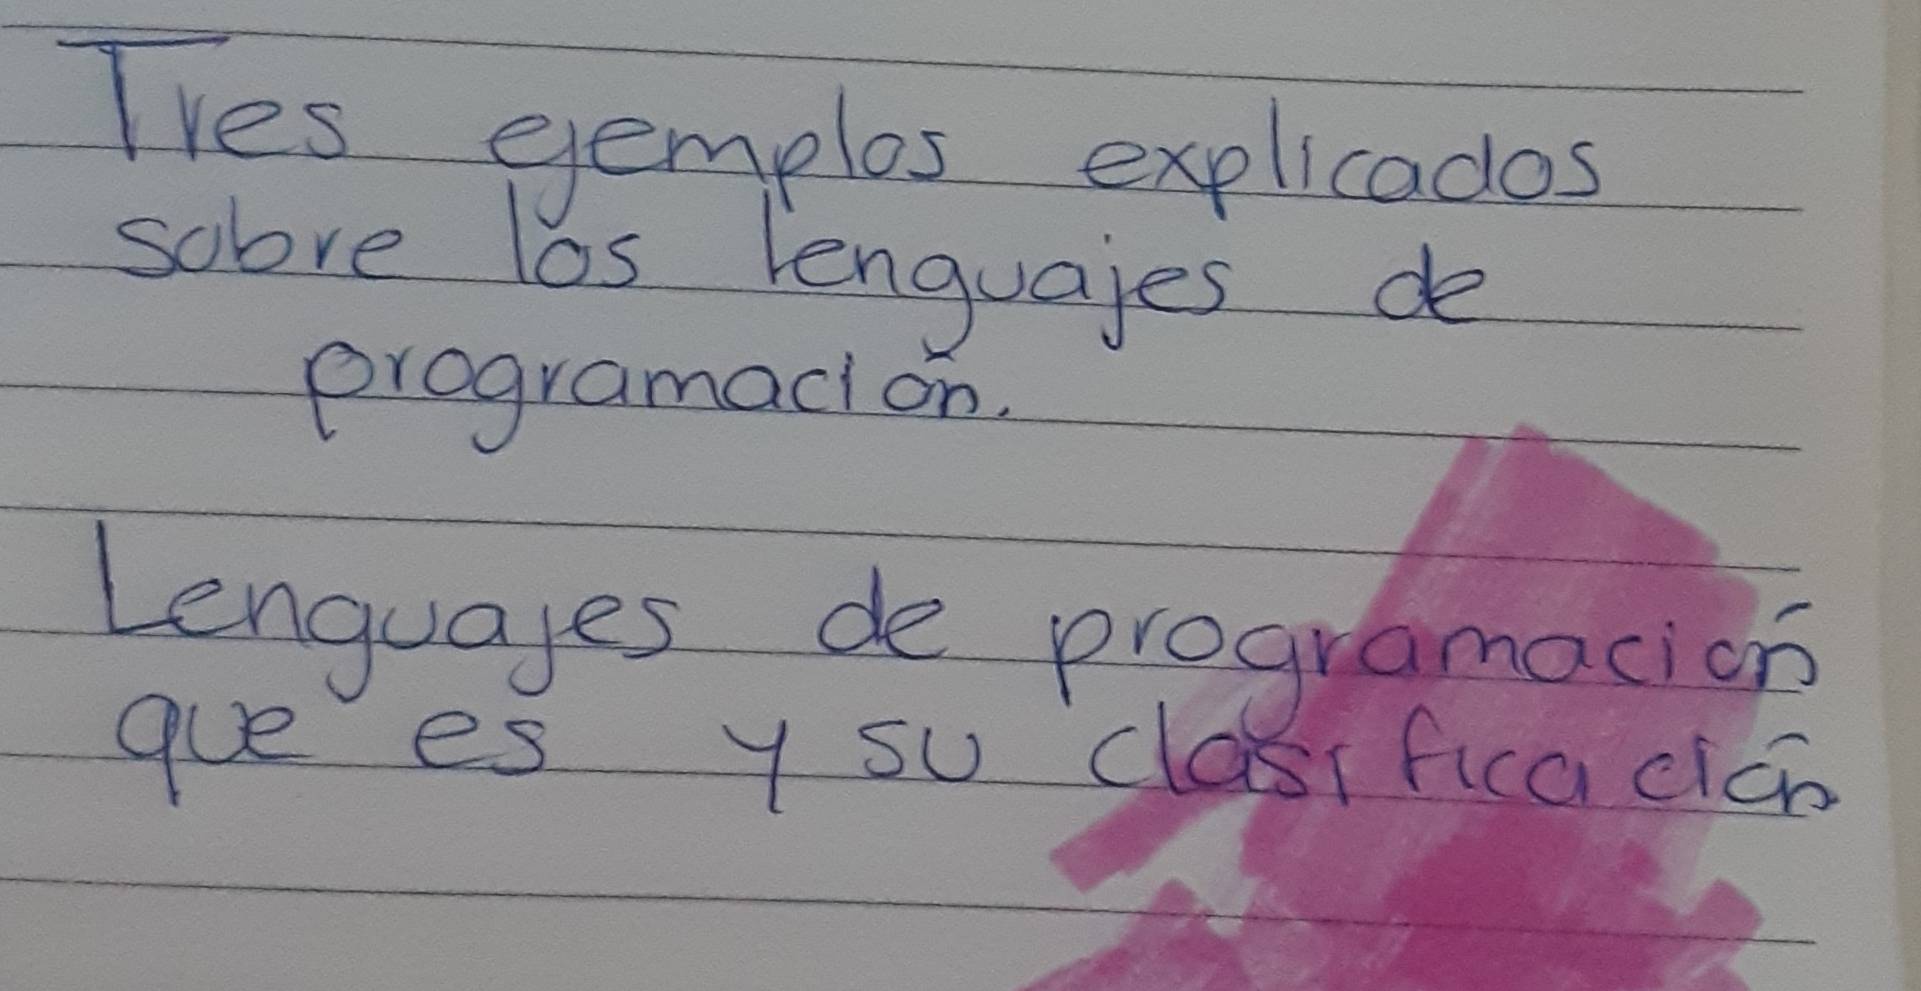 Tres ejemplos explicados
sobre los lenguajes de
programación.
Lenguajes de programación
que es y su clasificación